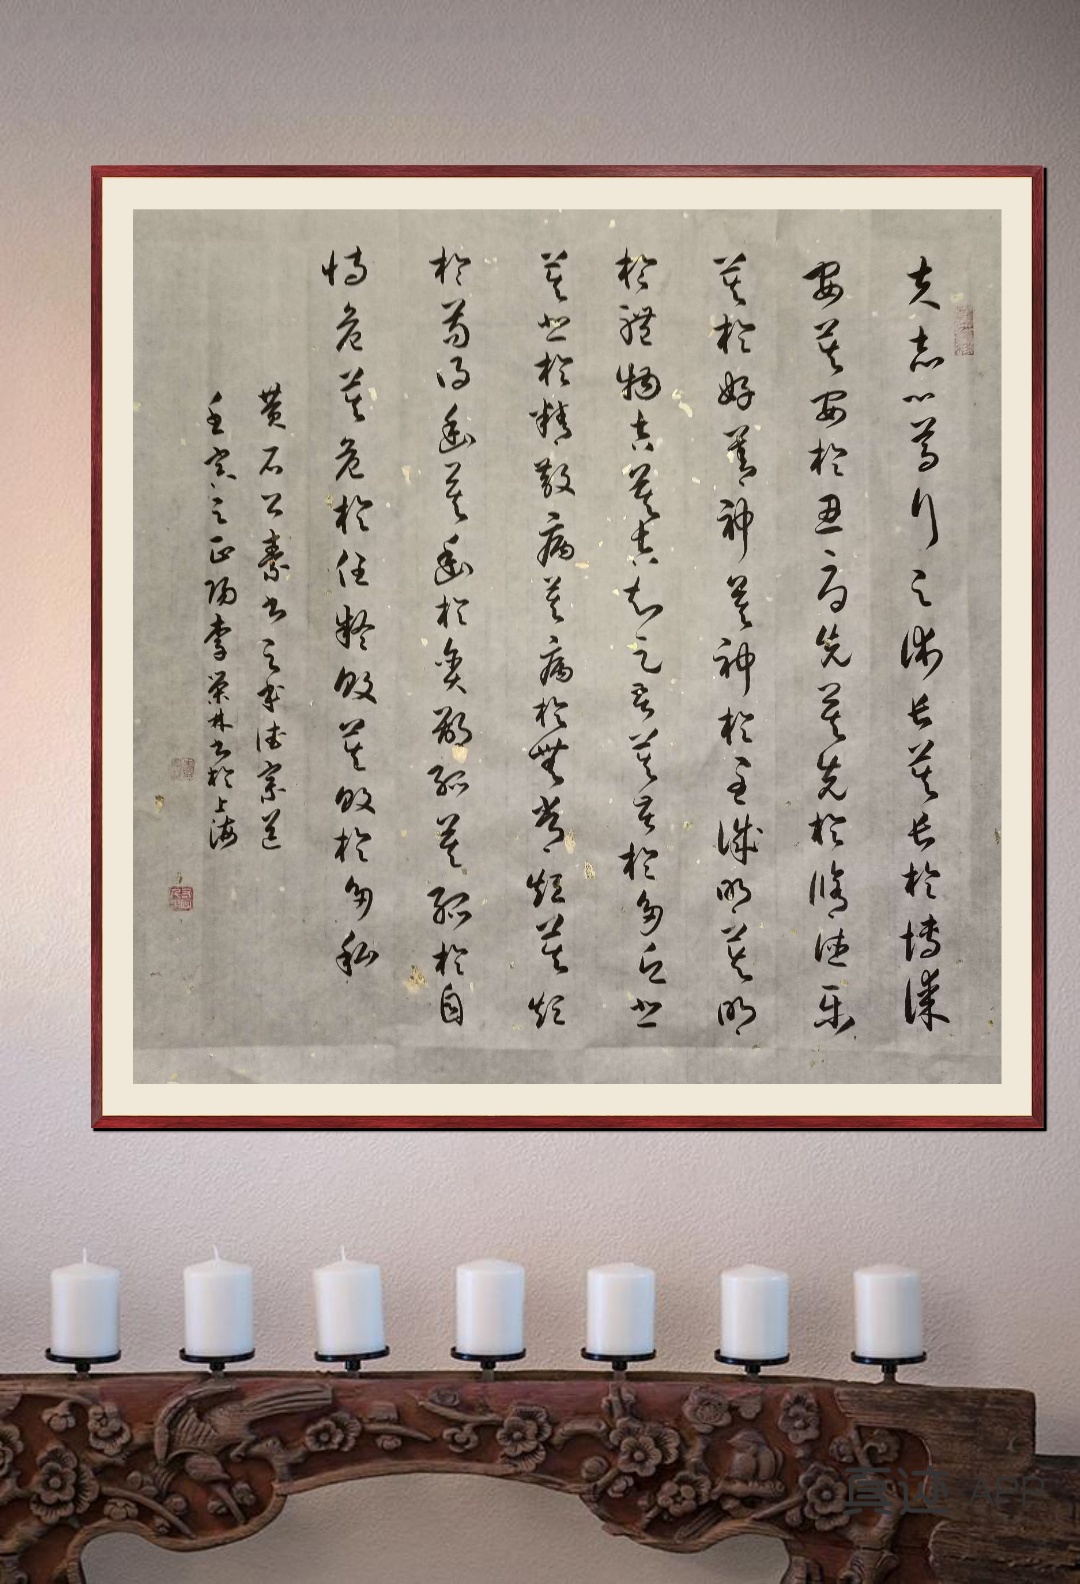 夫志心篤行之術長莫長於博謀
安莫安於忍辱先莫先於脩德樂
莫於好善神莫神於至誠明莫明
於體物吉莫吉知足苦莫苦於多願悲
莫悲於精散病莫病於無常短莫短
於苟得幽莫幽於貪鄙孤莫孤於自
恃危莫危於任疑敗莫敗於多私
黃石公素書之本德宗道
壬寅之正陽李榮林書於上海
真迹APP